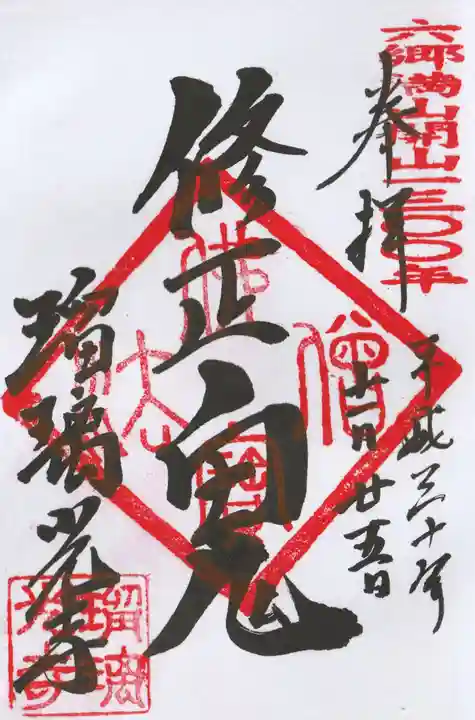 六郷満山開山一三〇〇年
奉拝
平成三十年
十一月廿五日
修正鬼
佛法僧寶
瑠璃光寺
瑠璃光寺